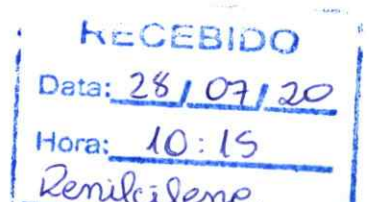 RECEBIDO
Data: 28/07/20
Hora: 10:15
Renilcilene